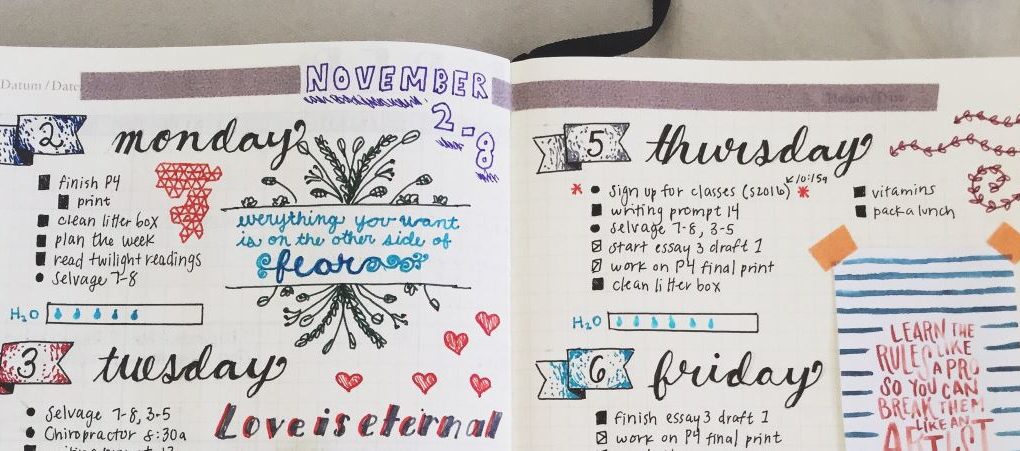 Datum / Date:
NOVEMBER
2-8
2 monday
finish P4
print
clean litter box
plan the week
read twilight readings
Selvage 7-8
H2O
everything you want
is on the other side of
fear
3 tuesday
Selvage 7-8, 3-5
Chiropractor 8:30a
Love is eternal
5 thursday
sign up for classes (s2016) 10:15a
writing prompt 14
selvage 7-8, 3-5
start essay 3 draft 1
work on P4 final print
clean litter box
H2O
vitamins
pack a lunch
6 friday
finish essay 3 draft 1
work on P4 final print
LEARN THE
RULES LIKE
A PRO
SO YOU CAN
BREAK THEM
LIKE AN
ARTIST